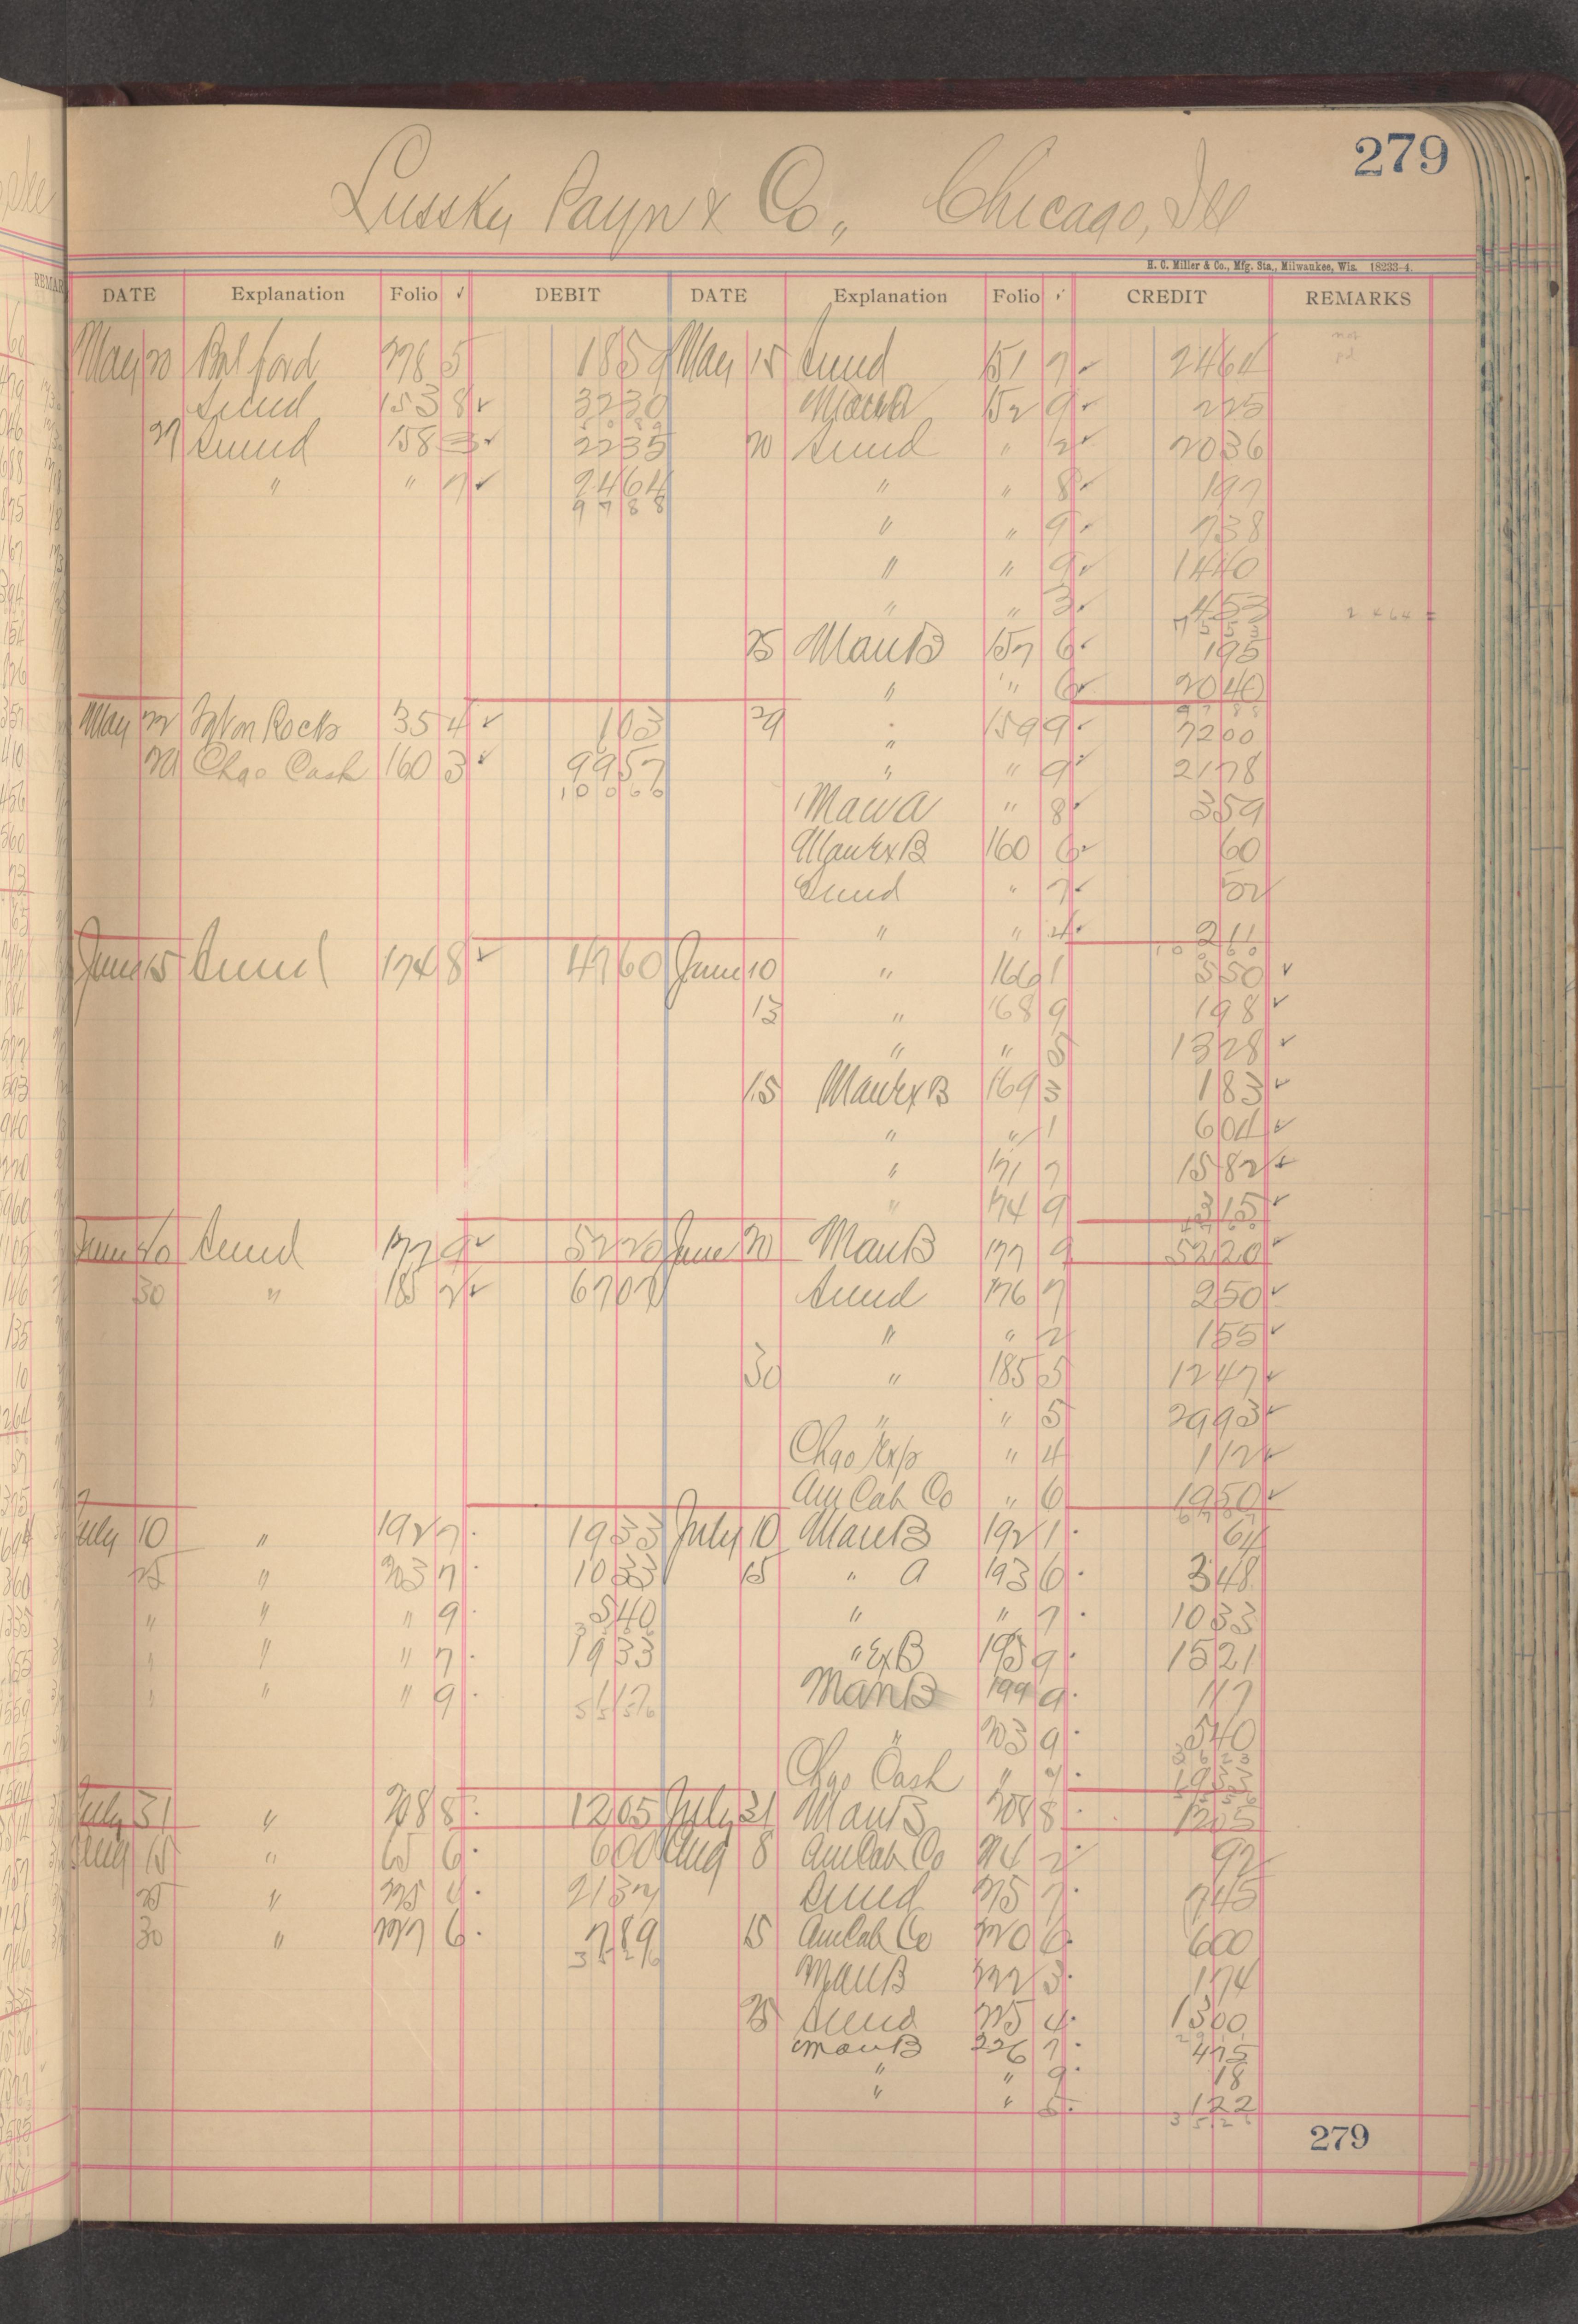 279
Lussky Payn & Co., Chicago, Ill
H. C. Miller & Co., Mfg. Sta., Milwaukee, Wis. 18233-4.
DATE Explanation Folio ✓ DEBIT DATE Explanation Folio ✓ CREDIT REMARKS
May 20 Bal ford 278 5 1859 May 15 Sund 151 7 ✓ 2464 not pd
Sund 153 8 ✓ 3230 Mawa 152 9 ✓ 225
27 Sund 158 3 ✓ 2235 20 Sund " 2 ✓ 2036
" " 7 ✓ 2464 " " 8 ✓ 197
9788 " " 9 ✓ 738
" " 9 ✓ 1440
" " 3 ✓ 453 2464
7553
25 ManB 157 6 ✓ 195
" " 6 ✓ 2040
9788
May 22 354 ✓ 103 29 " 159 9 ✓ 7200
Chgo Cash 160 3 ✓ 9957 " " 9 ✓ 2178
10060 Mawa " 8 ✓ 359
ManExB 160 6 ✓ 60
Sund " 7 ✓ 52
" " 4 ✓ 211
10060
June 15 Sund 174 8 ✓ 4760 June 10 " 166 1 550 ✓
13 " 168 9 198 ✓
" " 5 1328 ✓
15 ManExB 169 3 183 ✓
" " 1 604 ✓
" 171 7 1582 ✓
" 174 9 315 ✓
June 20 Sund 177 9 ✓ 5220 June 20 ManB 177 9 5220 ✓
30 " 185 2 ✓ 6707 Sund 176 7 250 ✓
" " 2 155 ✓
30 " 185 5 1247 ✓
" " 5 2993 ✓
Chgo Exp " 4 112 ✓
Am Cab Co " 6 1950 ✓
6707
July 10 " 192 7 1933 July 10 ManB 192 1 64
25 " 203 7 1033 15 " A 193 6 348
" " " 9 540 " " 7 1033
" " " 7 1933 " ExB 195 9 1521
" " " 9 117 ManB 199 9 117
5556
" 203 9 540
3623
Chgo Cash " 7 1933
July 31 " 208 8 1205 July 31 ManB 208 8 1205
Aug 15 " 6 600 Aug 8 Am Cab Co 214 2 92
25 " 225 4 2137 Sund 215 7 745
30 " 227 6 789 15 Am Cab Co 220 6 600
3526
ManB 222 3 174
25 Sund 225 4 1300
ManB 226 7 475
" " 9 18
" " 5 122
3526
279